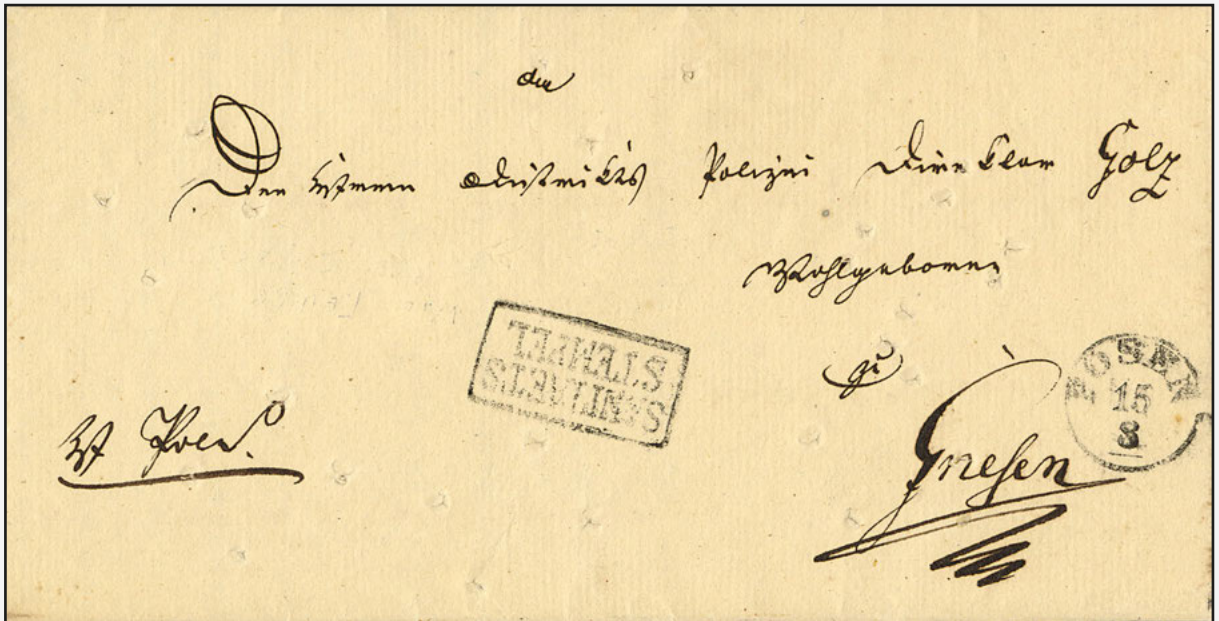 An
Den Herrn Districkts Polizei Direktor Golz
Wohlgeboren
SANITAETS
STEMPEL
zu
POSEN
15
8
Gnesen